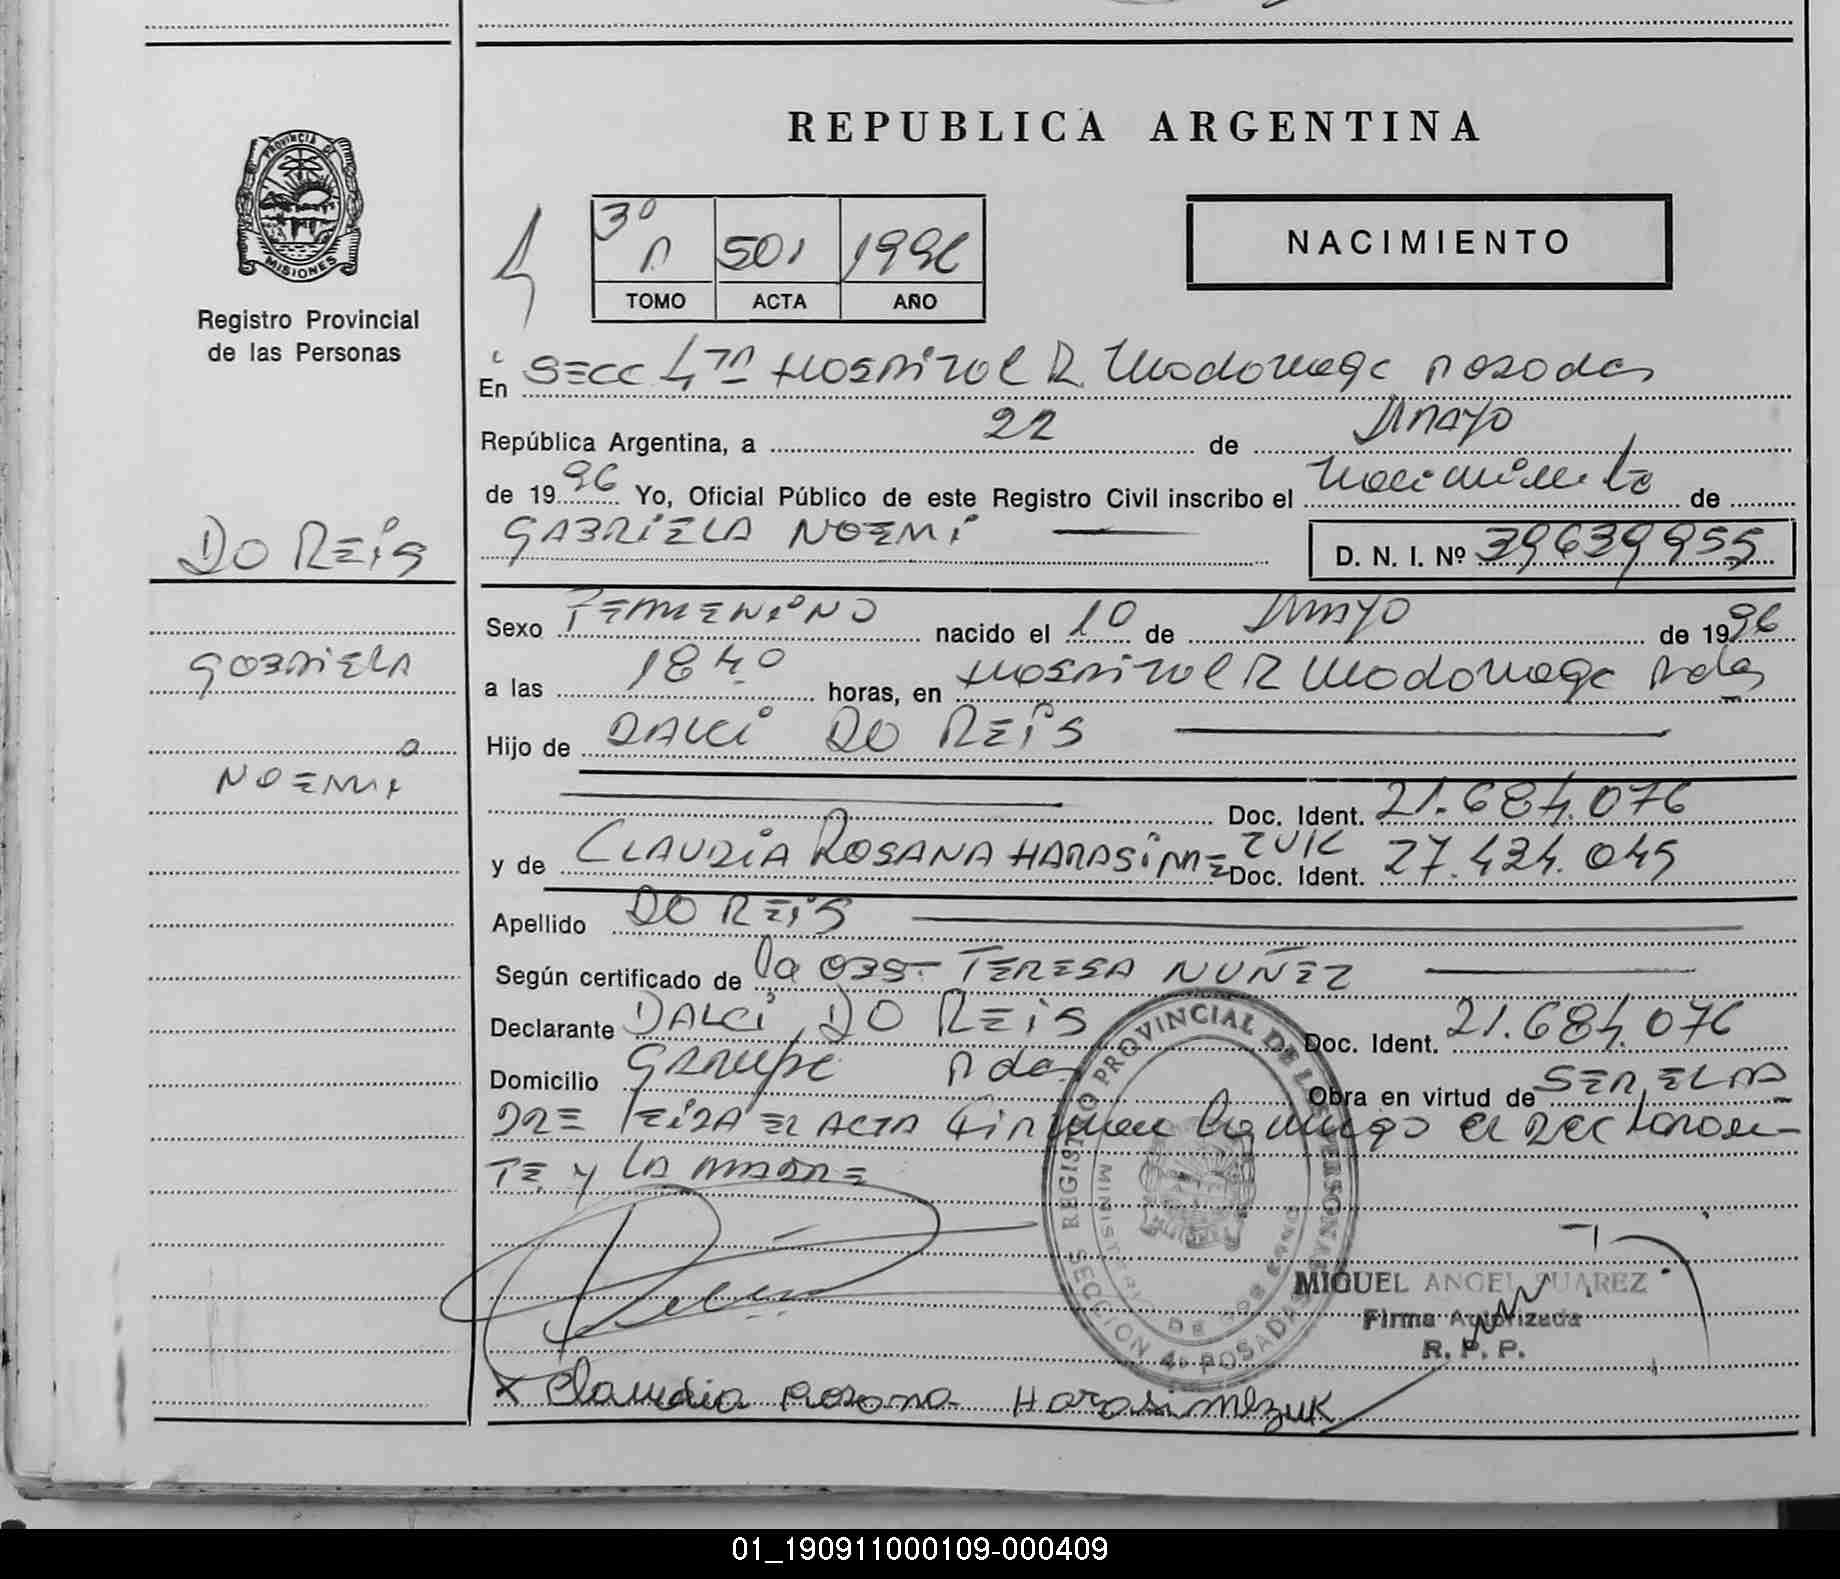 REPUBLICA ARGENTINA
PROVINCIA DE MISIONES
Registro Provincial
de las Personas
3º A 501 1996
TOMO ACTA AÑO
NACIMIENTO
En SECC 4ta HOSPITAL R. Madariaga Posadas
República Argentina, a 22 de MAYO
de 1996 Yo, Oficial Público de este Registro Civil inscribo el Nacimiento de
GABRIELA NOEMI D. N. I. Nº 39639955
DO REIS
GABRIELA
NOEMI
Sexo FEMENINO nacido el 10 de MAYO de 1996
a las 18 40 horas, en HOSPITAL R Madariaga Pdas
Hijo de DALCI DO REIS
Doc. Ident. 21.684.076
y de CLAUDIA ROSANA HARASIMEZUK Doc. Ident. 27.424.045
Apellido DO REIS
Según certificado de la OBS- TERESA NUÑEZ
Declarante DALCI DO REIS Doc. Ident. 21.684.076
Domicilio GARUPA Pdas Obra en virtud de SER EL PA
DRE LEIDA EL ACTA Firman conmigo el DECLARAN-
TE Y LA MADRE
REGISTRO PROVINCIAL DE LAS PERSONAS
SECCION 4a POSADAS
MINISTERIO DE GOBIERNO
MIGUEL ANGEL SUAREZ
Firma Autorizada
R. P. P.
x Claudia Rosana Harasimezuk
01_190911000109-000409